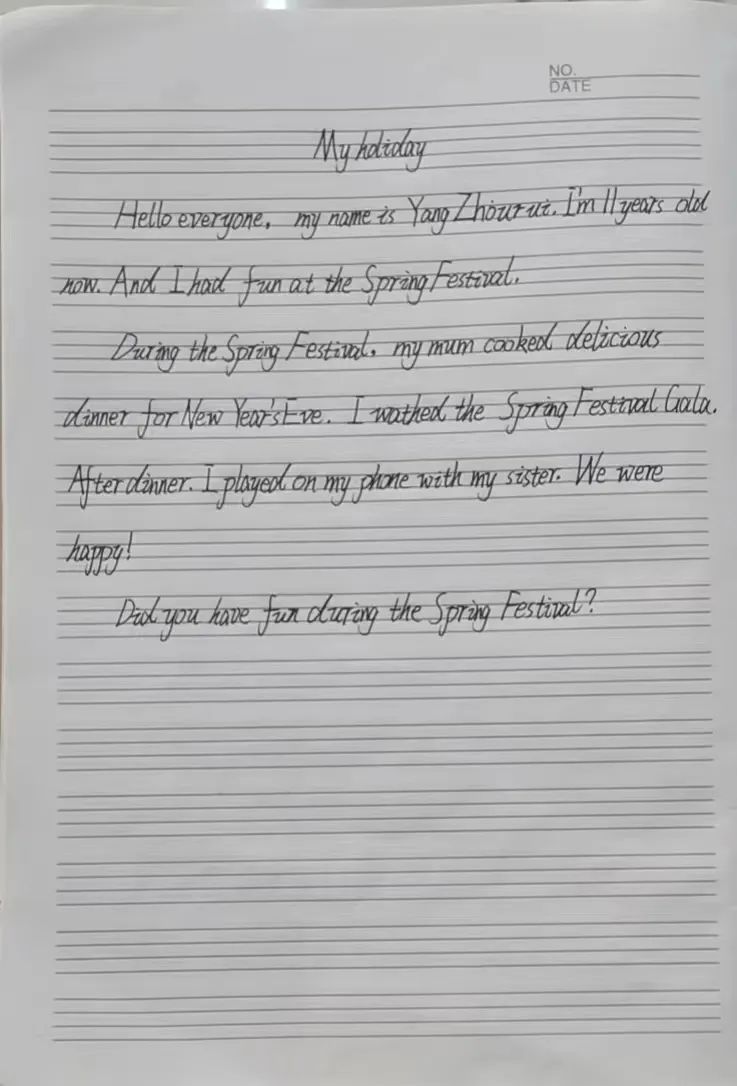 NO.
DATE
My holiday
Hello everyone, my name is Yang Zhourui. I'm 11 years old
now. And I had fun at the Spring Festival.
During the Spring Festival, my mum cooked delicious
dinner for New Year's Eve. I wathed the Spring Festival Gala.
After dinner. I played on my phone with my sister. We were
happy!
Did you have fun during the Spring Festival?